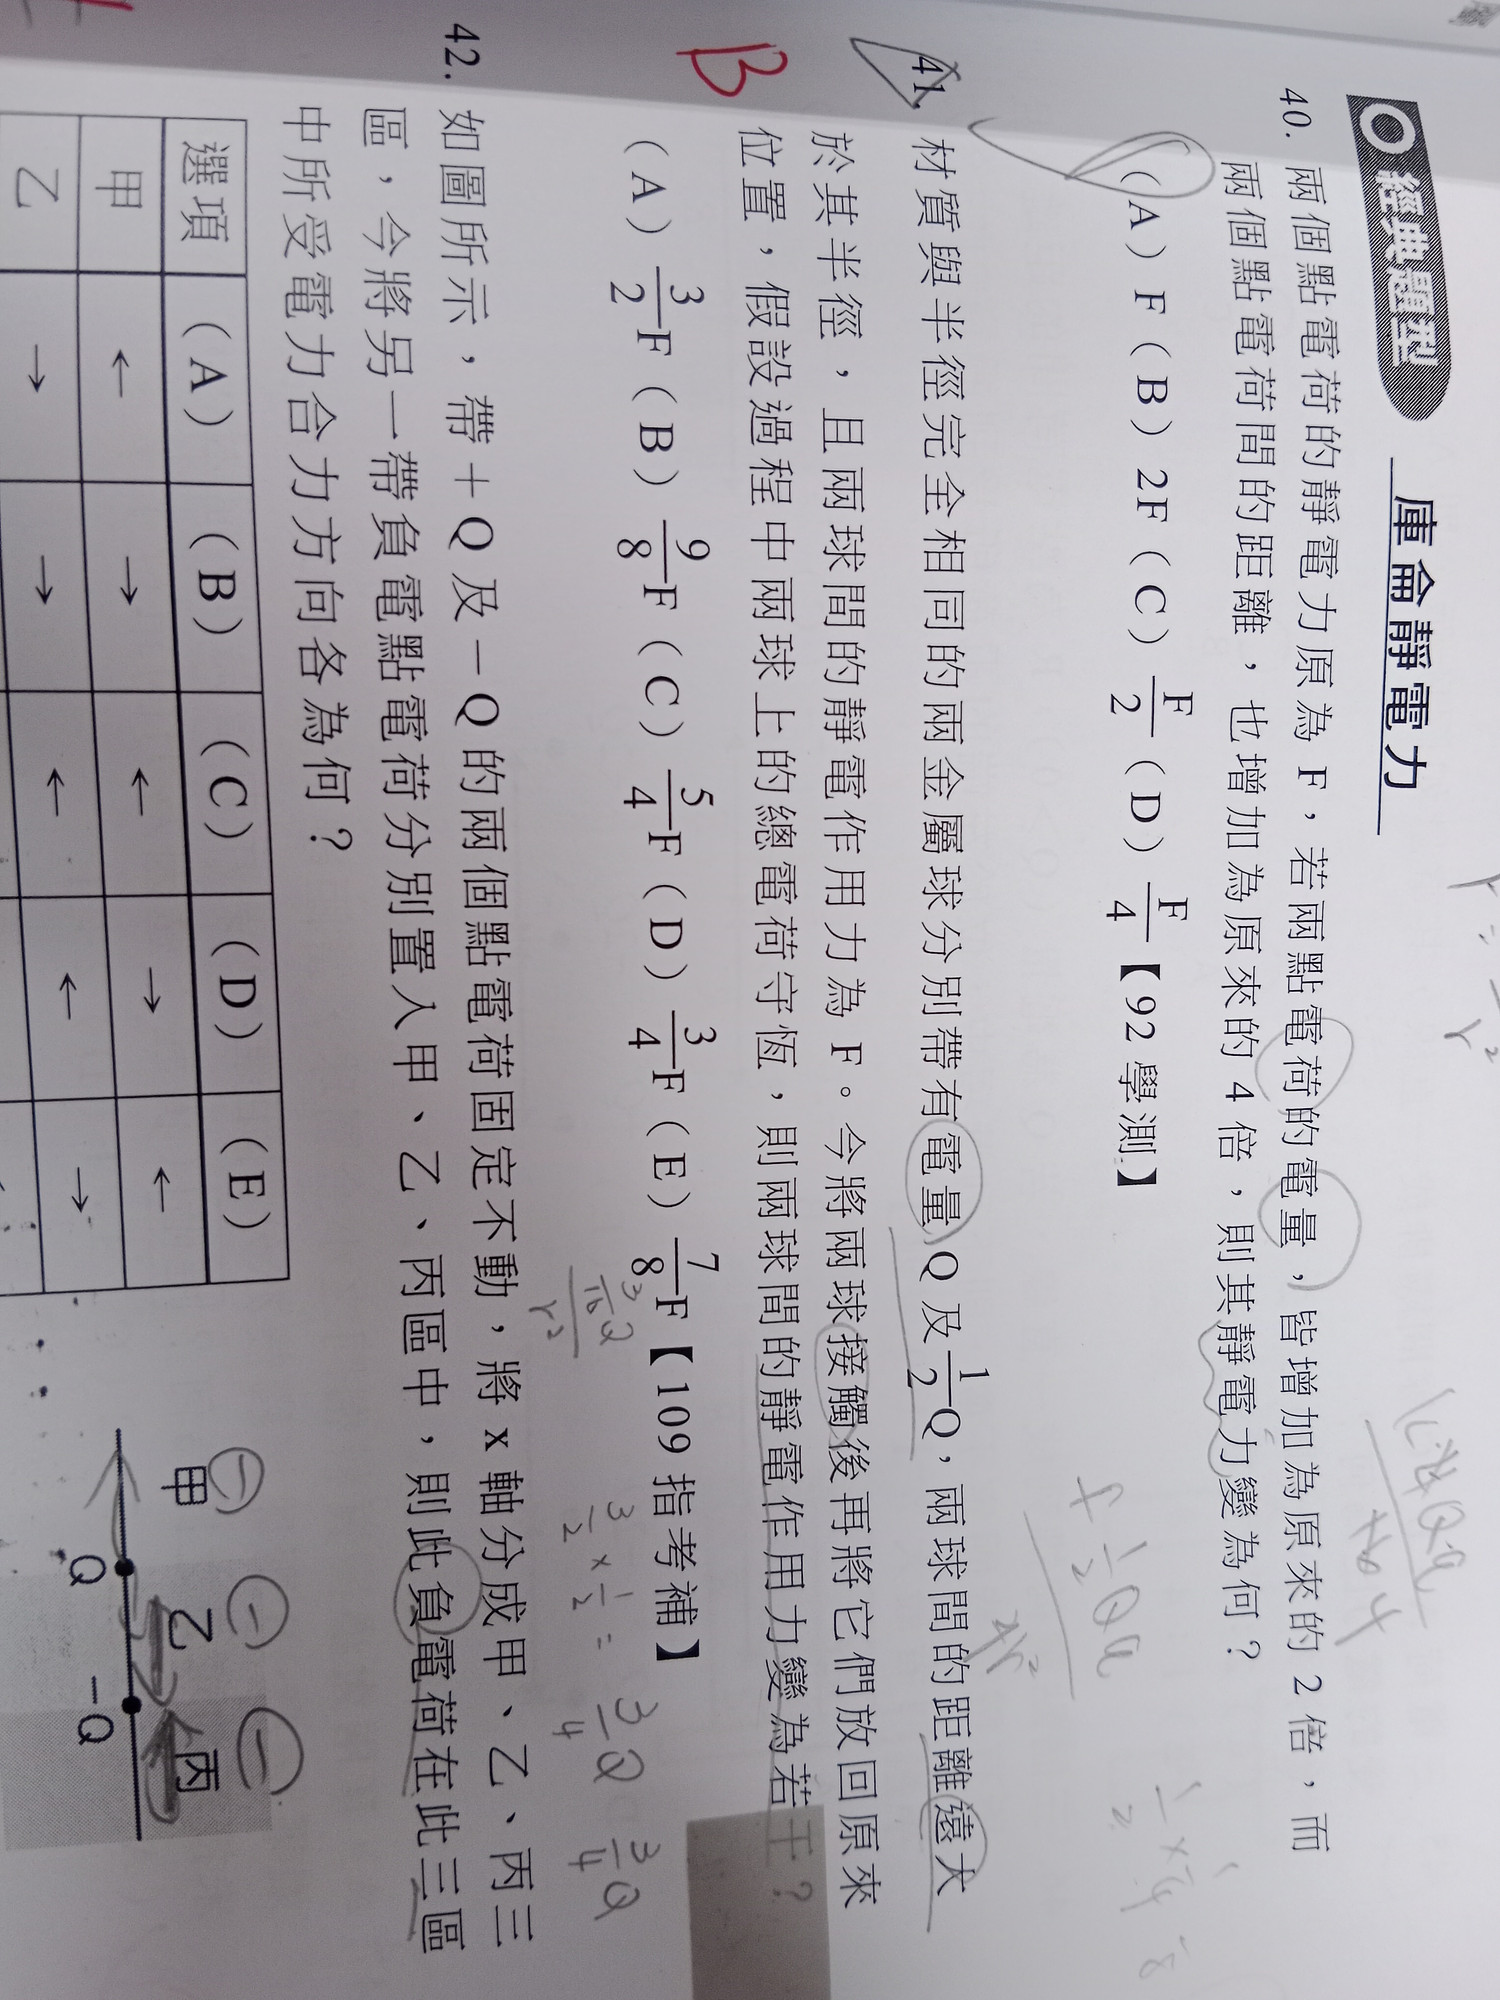 經典題型 庫侖靜電力
40. 兩個點電荷的靜電力原為 F，若兩點電荷的電量，皆增加為原來的 2 倍，而
兩個點電荷間的距離，也增加為原來的 4 倍，則其靜電力變為何？
（A）F（B）2F（C）F/2（D）F/4【92 學測】
41. 材質與半徑完全相同的兩金屬球分別帶有電量 Q 及 1/2Q，兩球間的距離遠大
於其半徑，且兩球間的靜電作用力為 F。今將兩球接觸後再將它們放回原來
位置，假設過程中兩球上的總電荷守恆，則兩球間的靜電作用力變為若干？
B
（A）3/2F（B）9/8F（C）5/4F（D）3/4F（E）7/8F【109 指考補】
3/2 × 1/2 = 3/4Q 3/4Q
42. 如圖所示，帶＋Q 及－Q 的兩個點電荷固定不動，將 x 軸分成甲、乙、丙三
區，今將另一帶負電點電荷分別置入甲、乙、丙區中，則此負電荷在此三區
中所受電力合力方向各為何？
選項 （A） （B） （C） （D） （E）
甲 ← → ← → ←
乙 → → ← ← →
甲 乙 丙
Q －Q